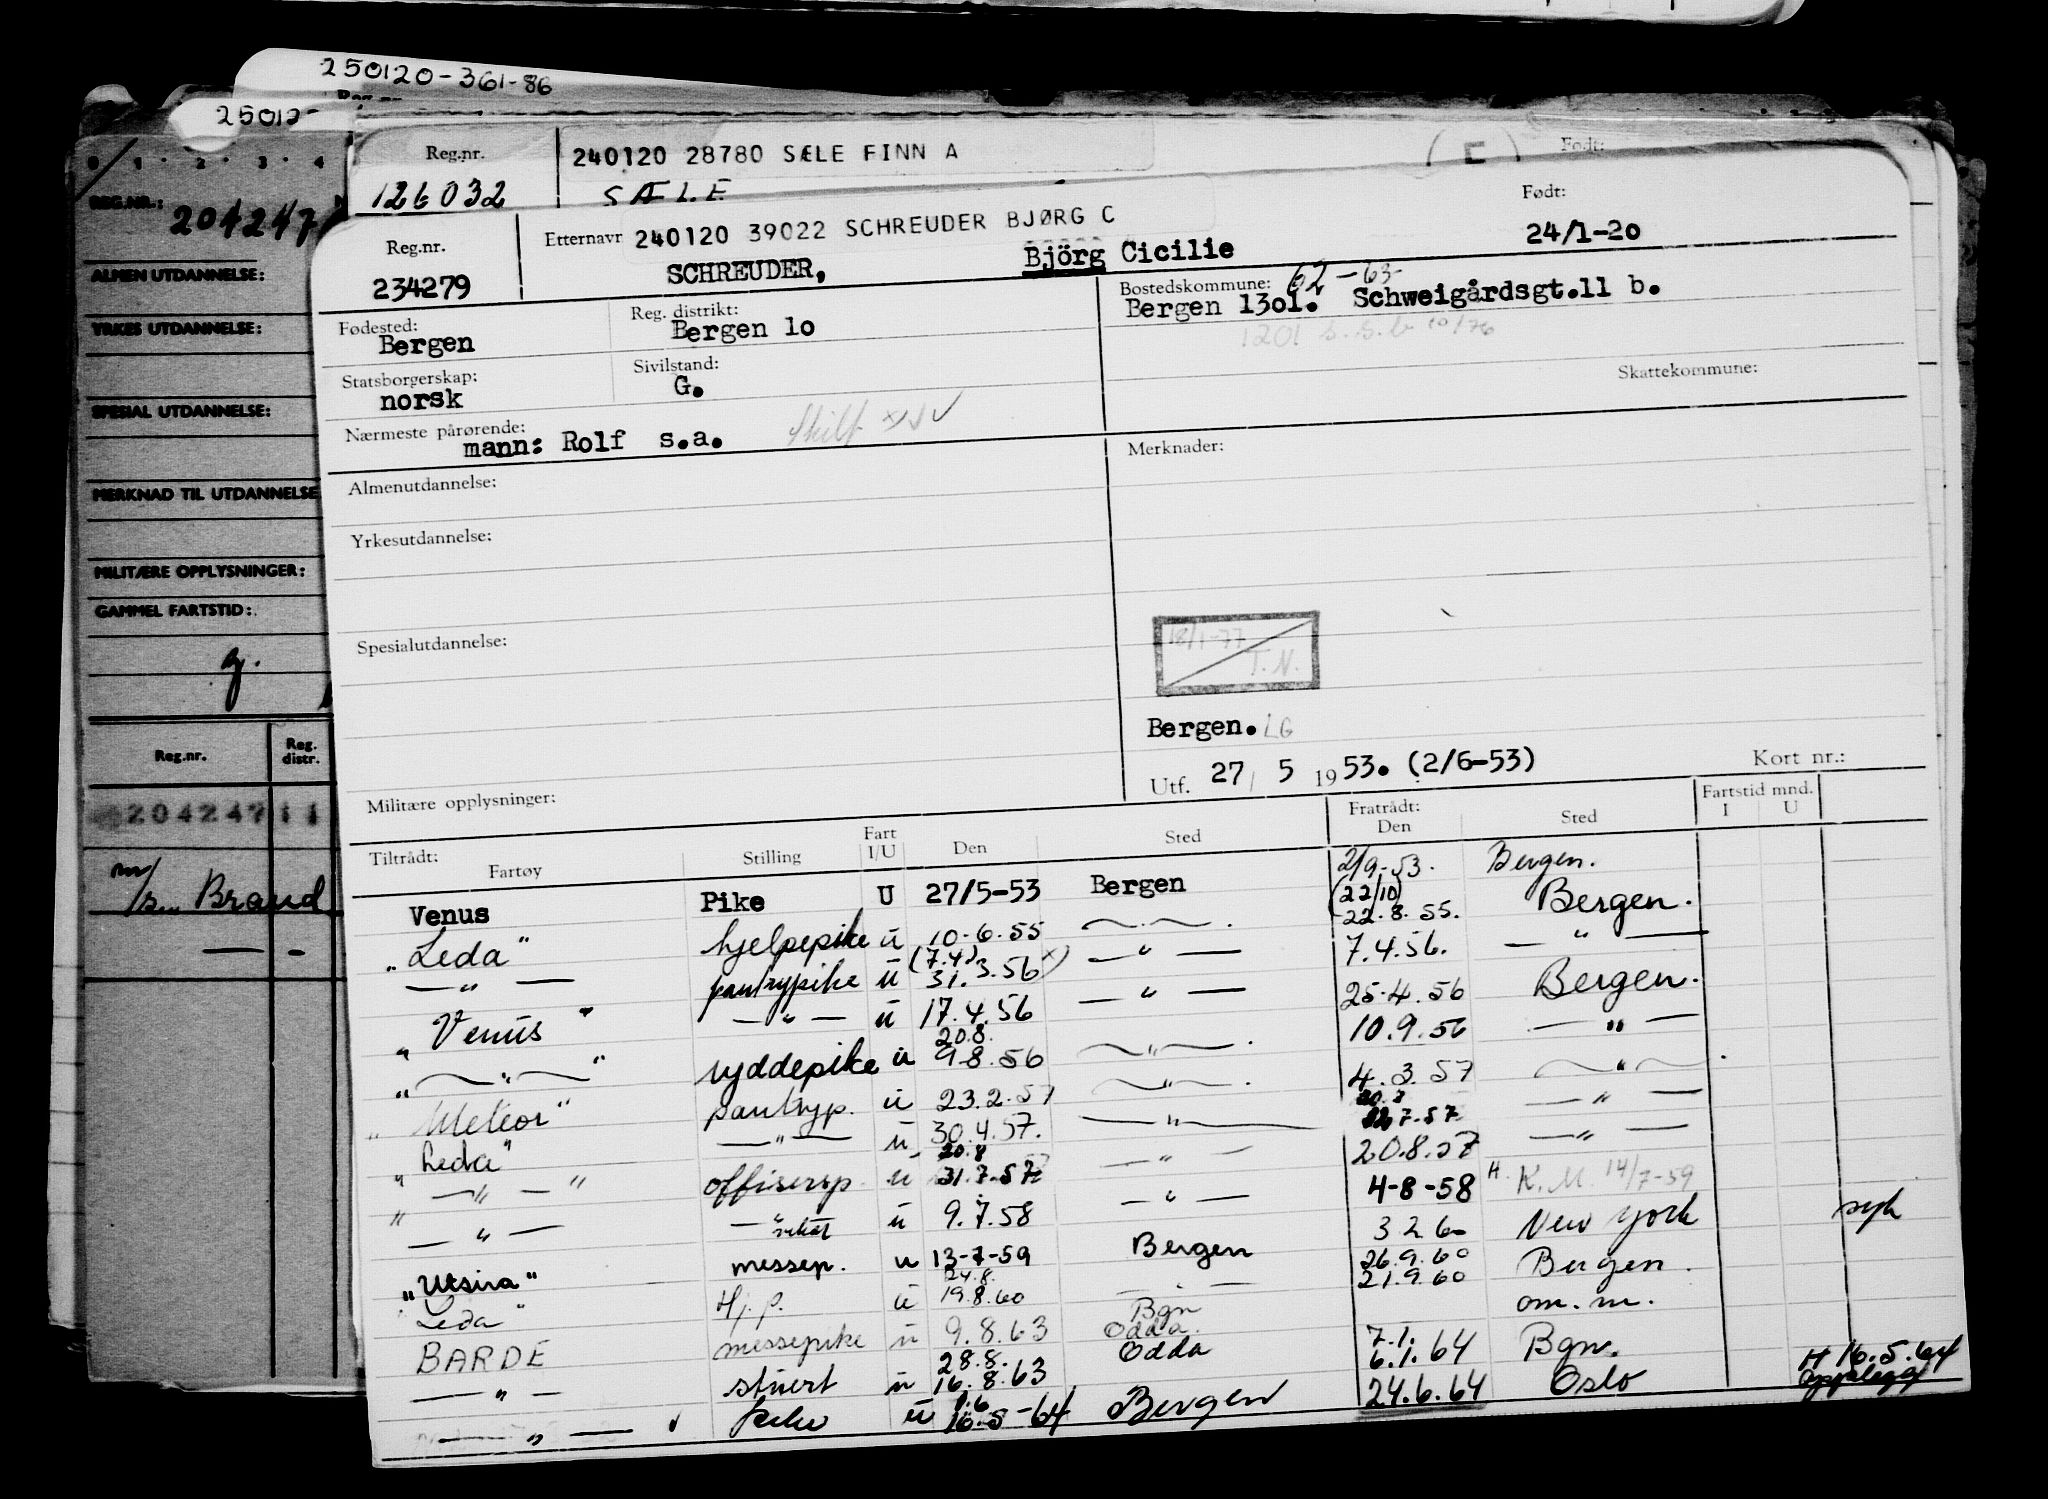 250120-361-86
Reg.nr.
25012-
0 1 · 2 · 3 · 4
REG.NR.:
204247
ALMEN UTDANNELSE:
YRKES UTDANNELSE:
SPESIAL UTDANNELSE:
MERKNAD TIL UTDANNELSE
MILITÆRE OPPLYSNINGER:
GAMMEL FARTSTID:
g.
Reg.nr. Reg. distr.
204247 11
m/s. Brand
— -
Reg.nr. 240120 28780 SÆLE FINN A (E) Født:
126032 SÆLE
Reg.nr. Etternavn 240120 39022 SCHREUDER BJØRG C Født:
234279 SCHREUDER, Björg Cicilie 24/1-20
Fødested: Reg. distrikt: Bostedskommune: 62-63
Bergen Bergen lo Bergen 13ol. Schweigårdsgt.ll b.
1201 s.s.b 10/76
Statsborgerskap: Sivilstand: Skattekommune:
norsk G.
Nærmeste pårørende: Merknader:
mann: Rolf s.a. skilt
Almenutdannelse:
Yrkesutdannelse:
Spesialutdannelse:
18/1-77
T.N.
Bergen. LG
Utf. 27/ 5 1953. (2/6-53) Kort nr.:
Militære opplysninger:
Tiltrådt: Fartøy Stilling Fart I/U Den Sted Fratrådt: Den Sted Fartstid mnd. I U
Venus Pike U 27/5-53 Bergen 2/9-53. Bergen.
(22/10)
„Leda" hjelpepike u 10-6-55 — . 22.8.55. Bergen.
(7.4)
— " — pantrypike u 31.3.56 x) — " — 7.4.56. — " —
„Venus" — " — u 17.4.56 — " — 25.4.56 Bergen.
20.8.
„ — " — " ryddepike u 9.8.56 — " — . 10.9.56 — " —
„Meteor" pantryp. u 23.2.57 — " — . 4.3.57 — " — .
20.8
„Leda" — " — u 30.4.57. — " — 22.7.57 — " —
20.8
„ — " — " offisersp. u 31.7.57 — " — 20.8.57 — " —
— " — — " — u 9.7.58 — " — 4-8-58 H K.M. 14/7-59
„Utsira" messep. u 13-7-59 Bergen 3 2 60 New York syk
24.8. 26.9.60
„Leda" Hj.p. u 19.8.60 — " — 21.9.60 Bergen.
Bgn
BARDE messepike u 9.8.63 Odda. om.m.
28.8. 7.1.
— " — stuert u 16.8.63 Odda 6.1.64 Bgn.
1.6 H 16.5.64
— " — pike u 16.5-64 Bergen 24.6.64 Oslo